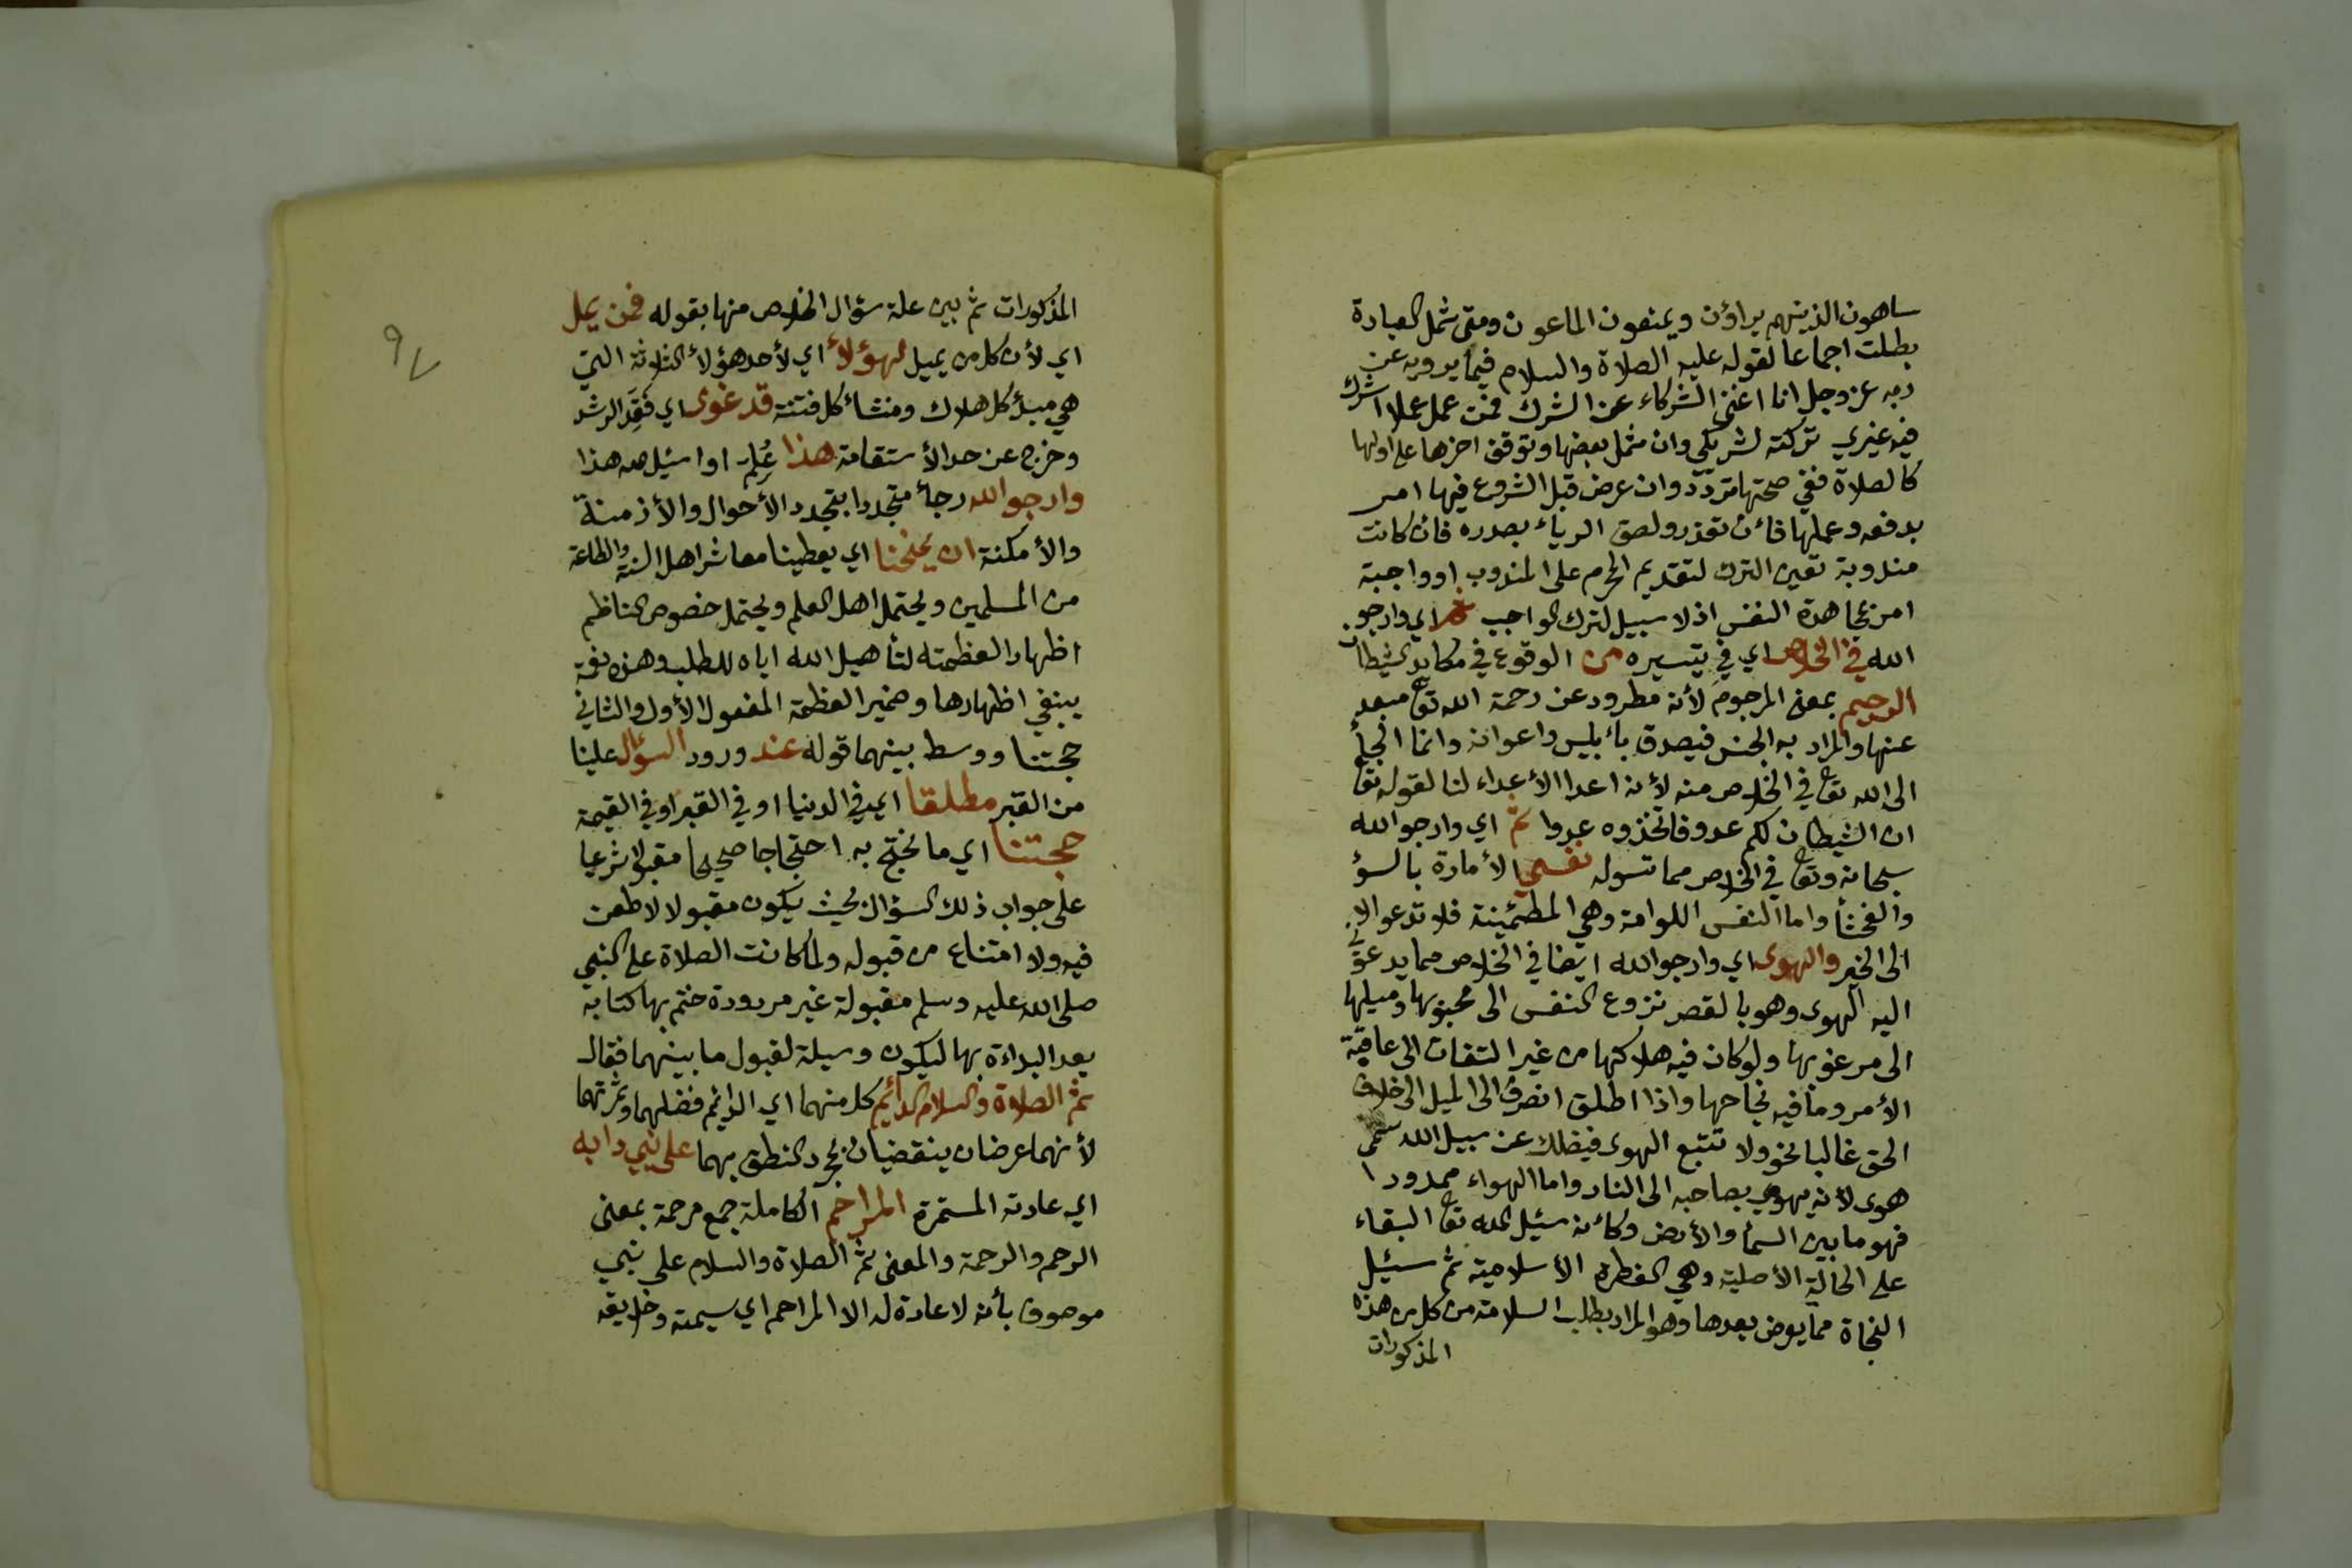 ساهون الذينهم يراؤن ويمنعون الماعون ومتى شمل العبادة
بطلت اجماعا لقوله عليه الصلاة والسلام فيما يرويه عن
ربه عز وجل انا اغنى الشركاء عن الشرك فمن عمل عملا اشرك
فيه غيري تركته لشريكي وان شمل بعضها وتوقف اخرها على اولها
كالصلاة ففي صحتها تردد وان عرض قبل الشروع فيها امر
بدفعه وعملها فأن تعذر ولصق الرياء بصدره فان كانت
مندوبة تعين الترك لتقديم المحرم على المندوب او واجبة
امر بمجاهدة النفس اذ لا سبيل لترك الواجب اي وارجو
الله في الخلاص اي في تيسيره من الوقوع في مكايد الشيطان
الرجيم بمعنى المرجوم لأنه مطرود عن رحمة الله تع مبعد
عنها والمراد به الجنس فيصدق بأبليس واعوانه وانما الجأ
الى الله تع في الخلاص منه لأنه اعدا الأعداء لنا لقوله تع
ان الشيطان لكم عدو فاتخذوه عدوا ثم اي وارجو الله
سبحانه وتع في الخلاص مما تسوله نفسي الأمارة بالسؤ
والفحشأ واما النفس اللوامة وهي المطمئينة فلا تدعو الا
الى الخير والهوى اي وارجو الله ايضا في الخلاص مما يدعوني
اليه الهوى وهو بالقصر نزوع النفس الى محبوبها وميلها
الى مرغوبها ولو كان فيه هلاكها من غير التفات الى عاقبة
الأمر وما فيه نجاحها واذا اطلق انصرف الى الميل الى خلاف
الحق غالبا نحو ولا تتبع الهوى فيضلك عن سبيل الله سمى
هوى لأنه يهوي بصاحبه الى النار واما الهواء ممدودا
فهو ما بين السمأ والأرض وكأنه سئيل الله تع البقاء
على الحالة الأصلية وهي الفطرة الأسلامية ثم سئيل
النجاة مما يعرض بعدها وهو المراد بطلب السلامة من كل من هذه
المذكورات
٩٧
المذكورات ثم بين علة سؤال الخلاص منها بقوله فمن يمل
اي لأن كل من يميل لهؤلأ اي لأحد هؤلأ الثلاثة التي
هي مبدأ كل هلاك ومنشأ كل فتنة قد غوى اي فقد الرشد
وخرج عن حد الأستقامة هذا علم او اسئيل هذا
وارجو الله رجأ متجددا بتجدد الأحوال والأزمنة
والأمكنة ان يمنحنا اي يعطينا معاشر اهل السنة والطاعة
من المسلمين ويحتمل اهل العلم ويحتمل خصوص الناظم
اظهارا لعظمته لتأهيل الله اياه للطلب وهذه نعمة
ينبغي اظهارها وضمير العظمة المفعول الأول والثاني
حجتنا ووسط بينهما قوله عند ورود السؤال علينا
من القبر مطلقا اي في الدنيا او في القبر او في القيمة
حجتنا اي ما نحتج به احتجاجا صحيحا مقبولا شرعيا
على جواب ذلك السؤال بحيث يكون مقبولا لا طعن
فيه ولا امتناع من قبوله ولما كانت الصلاة على النبي
صلى الله عليه وسلم مقبولة غير مردودة ختم بها كتابه
بعد البداءة بها ليكون وسيلة لقبول ما بينهما فقال
ثم الصلاة والسلام الدائم كل منهما اي الدائم فضلهما وثمرتهما
لأنهما عرضان ينقضيان بمجرد النطق بهما على نبي دابه
اي عادته المستمرة المراحم الكاملة جمع مرحمة بمعنى
الرحم والرحمة والمعنى ثم الصلاة والسلام على نبي
موصوف بأنه لا عادة له الا المراحم اي سيمته وخلايقه